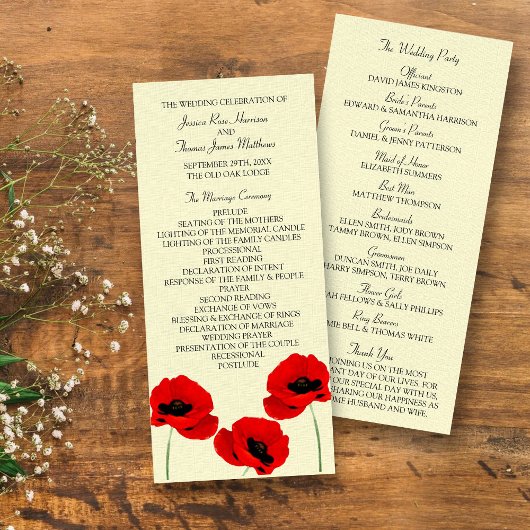 THE WEDDING CELEBRATION OF
Jessica Rose Harrison
AND
Thomas James Matthews
SEPTEMBER 29TH, 20XX
THE OLD OAK LODGE
The Marriage Ceremony
PRELUDE
SEATING OF THE MOTHERS
LIGHTING OF THE MEMORIAL CANDLE
LIGHTING OF THE FAMILY CANDLES
PROCESSIONAL
FIRST READING
DECLARATION OF INTENT
RESPONSE OF THE FAMILY & PEOPLE
PRAYER
SECOND READING
EXCHANGE OF VOWS
BLESSING & EXCHANGE OF RINGS
DECLARATION OF MARRIAGE
WEDDING PRAYER
PRESENTATION OF THE COUPLE
RECESSIONAL
POSTLUDE
The Wedding Party
Officiant
DAVID JAMES KINGSTON
Bride's Parents
EDWARD & SAMANTHA HARRISON
Groom's Parents
DANIEL & JENNY PATTERSON
Maid of Honor
ELIZABETH SUMMERS
Best Man
MATTHEW THOMPSON
Bridesmaids
ELLEN SMITH, JODY BROWN
TAMMY BROWN, ELLEN SIMPSON
Groomsmen
DUNCAN SMITH, JOE DAILY
HARRY SIMPSON, TERRY BROWN
Flower Girls
AH FELLOWS & SALLY PHILLIPS
Ring Bearers
MIE BELL & THOMAS WHITE
Thank You
JOINING US ON THE MOST
ANT DAY OF OUR LIVES. FOR
OUR SPECIAL DAY WITH US,
SHARING OUR HAPPINESS AS
OME HUSBAND AND WIFE.